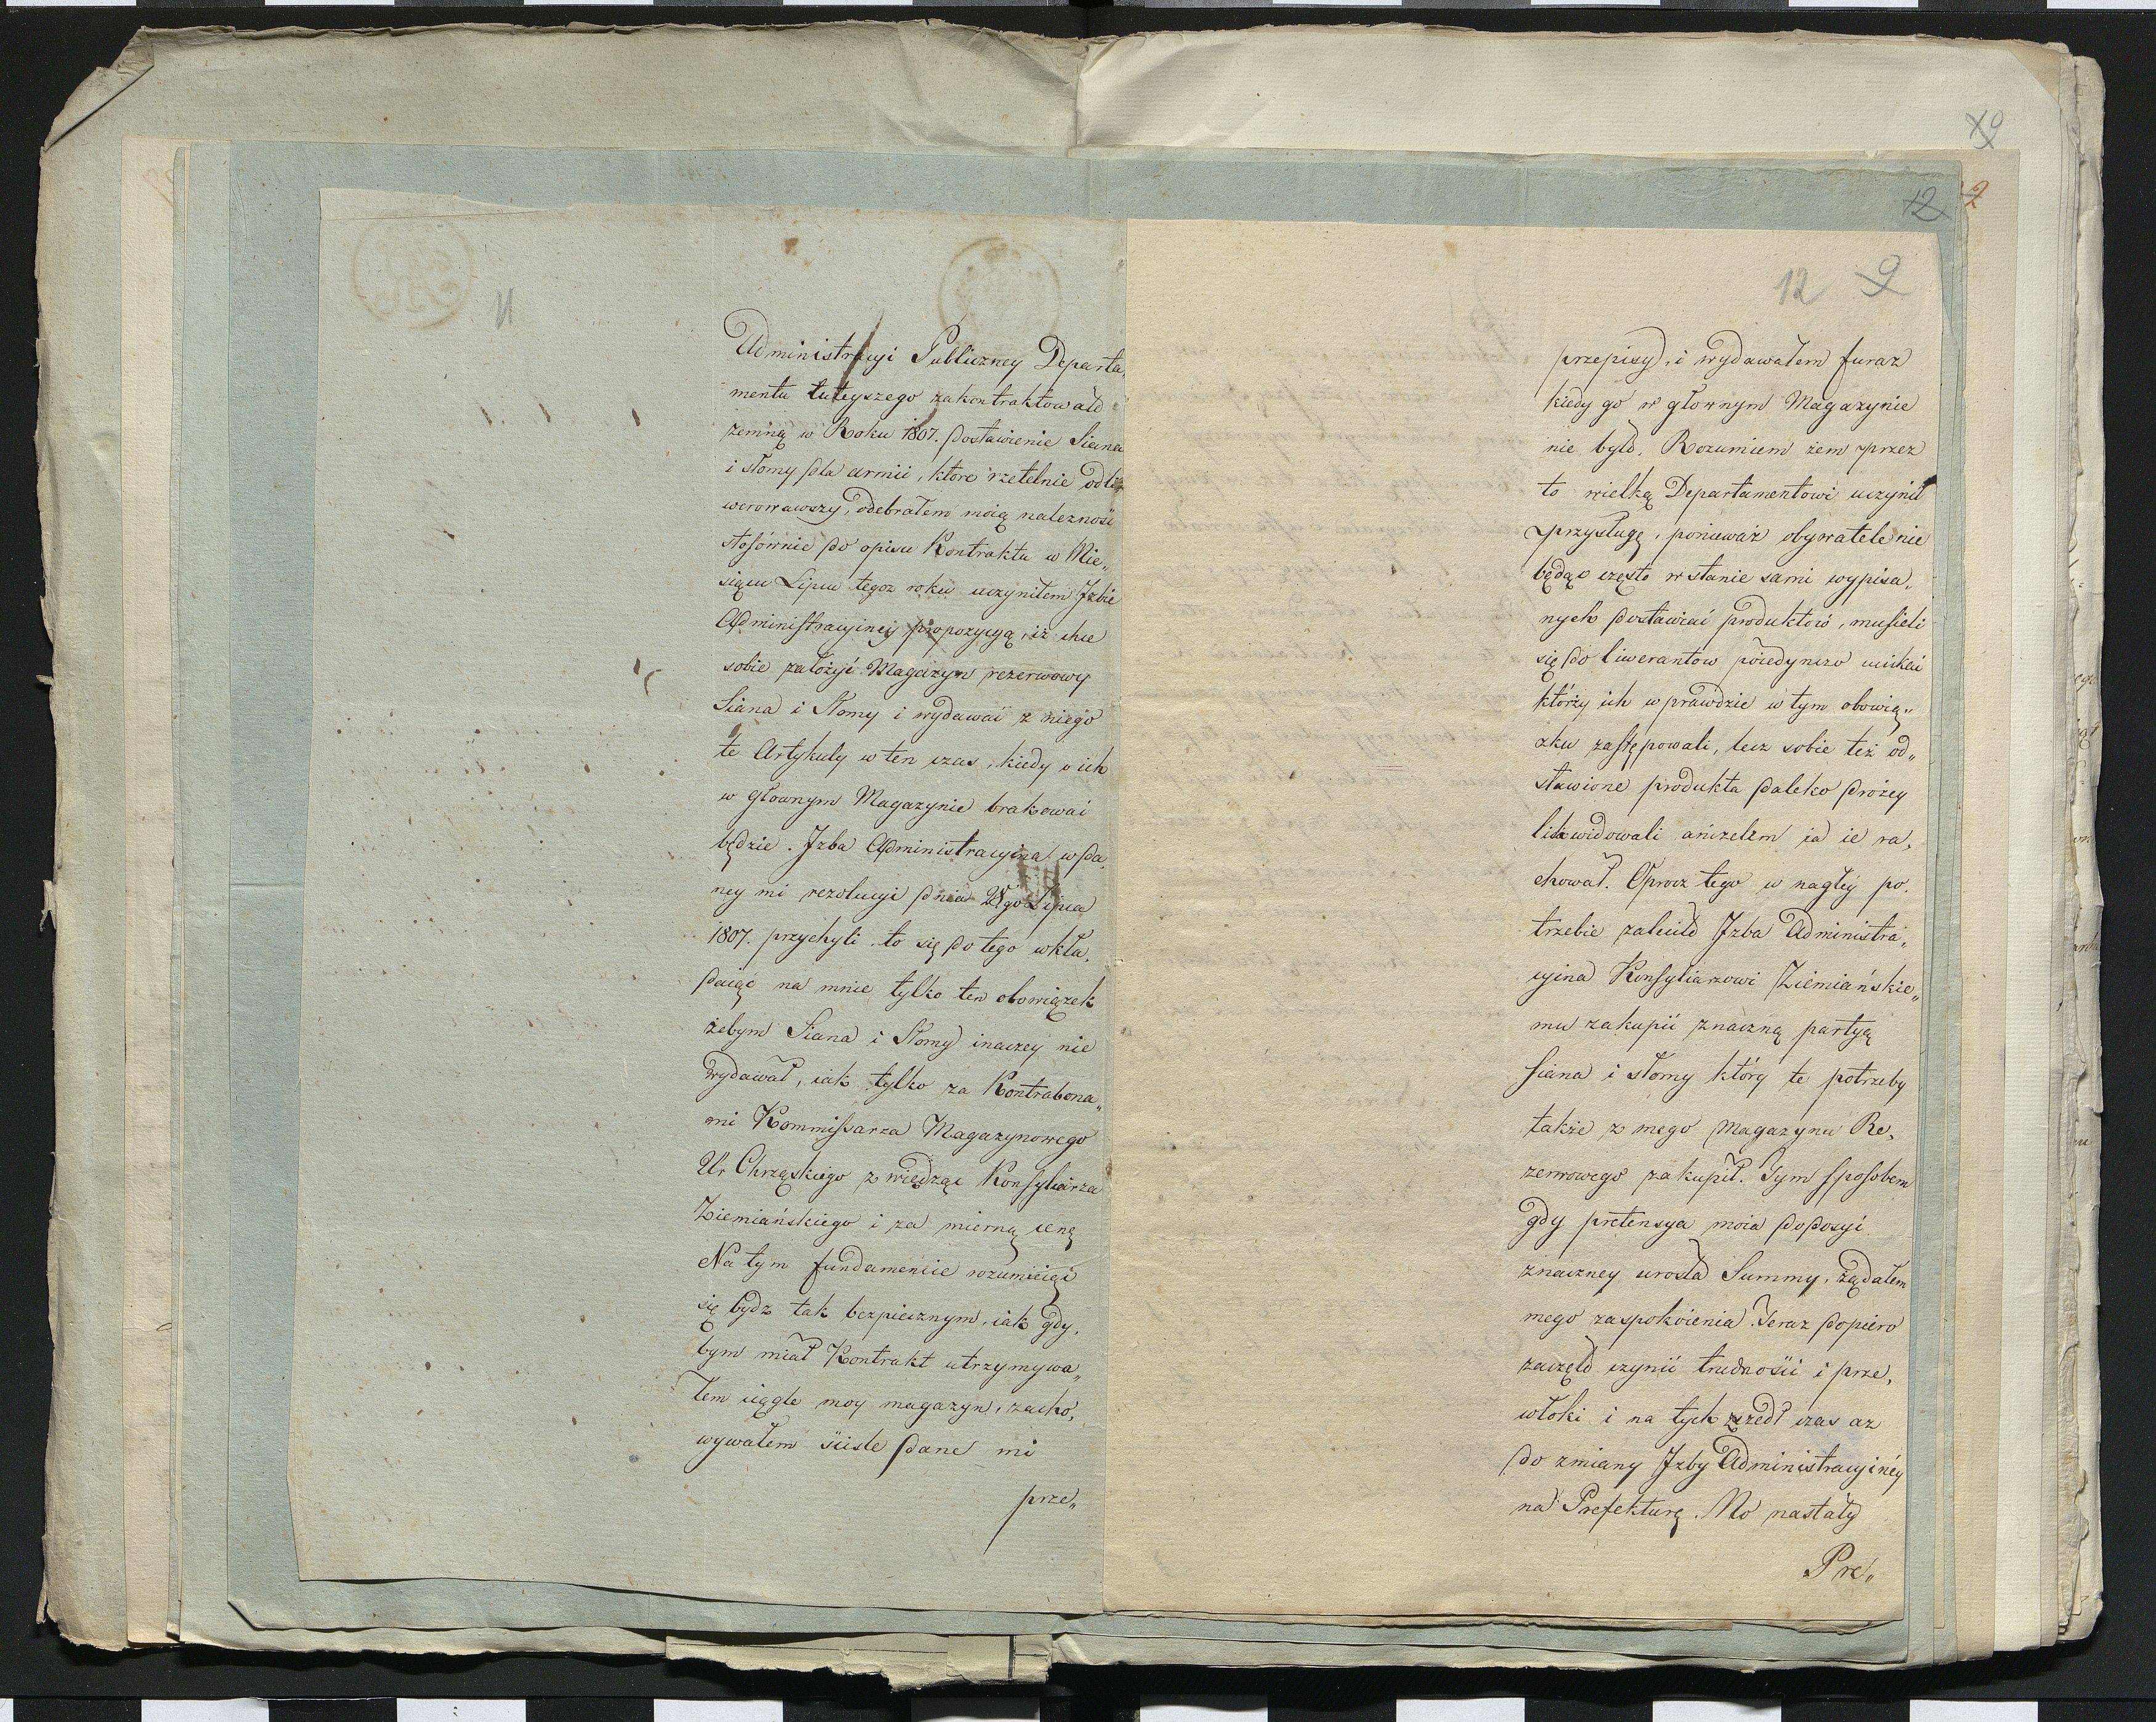 11
Administracyi Publiczney Departa„
mentu tuteyszego zakontraktowała
zemną w Roku 1807. dostawienie Siana
i słomy dla armii, ktore rzetelnie odli„
werowawszy, odebrałem moią należnosć
stosównie do opisu Kontraktu w Mie„
siącu Lipcu tegoz roku uczyniłem Jzbie
Administracyiney propozycyą, iż chce
sobie założyć Magazyn rezerwowy
Siana i Słomy i wydawać z niego
te Artykuly w ten czas, kiedy o ich
w głownym Magazynie brakować
będzie. Jzba Administracyina w da„
ney mi rezolucyi dnia Lipca
1807. przychyli„ ła się do tego wkła„
daiąc na mnie tylko ten obowiązek
żebym Siana i Słomy inaczey nie
wydawał, iak tylko za Kontrabona„
mi Kommissarza Magazynowego
Ur Chrząskiego z wiedzą Konsyliarza
Ziemiańskiego i za mierną cenę
Na tym fundamencie rozumieiąc
się bydz tak bezpiecznym, iak gdy„
bym miał Kontrakt utrzymywa„
łem ciągle moy magazyn, zacho„
wywałem sciśle dane mi
prze„
12 9
12
2
9
przepisy, i wydawałem furaz
kiedy go w głownym Magazynie
nie było. Rozumiem żem przez
to wielką Departamentowi uczynił
przysługę, ponieważ obywatele nie
będąc często w stanie sami wypisa„
nych dostawiać produktów, musieli
się do liwerantow poiedynczo uciekać
którzy ich wprawdzie w tym obowią„
zku zastępowali, lecz sobie też od„
stawione produkta daleko drożey
likwidowali aniżelim ia ie ra„
chował. Oprocz tego w nagłey po„
trzebie zaleciła Jzba Administra„
cyina Konsyliarzowi Ziemiańskie„
mu zakupić znaczną partyą
siana i słomy który te potrzeby
także z mego Magazynu Re„
zerwowego zakupił. Tym sposobem
gdy pretensya moia do dosyć
znaczney urosła Summy, żądałem
mego zaspokoienia. Teraz dopiero
zaczęła czynić trudności i prze„
włoki i na tych zszedł czas aż
do zmiany Jzby Administracyiney
na Prefekturę. No nastały
Pre„